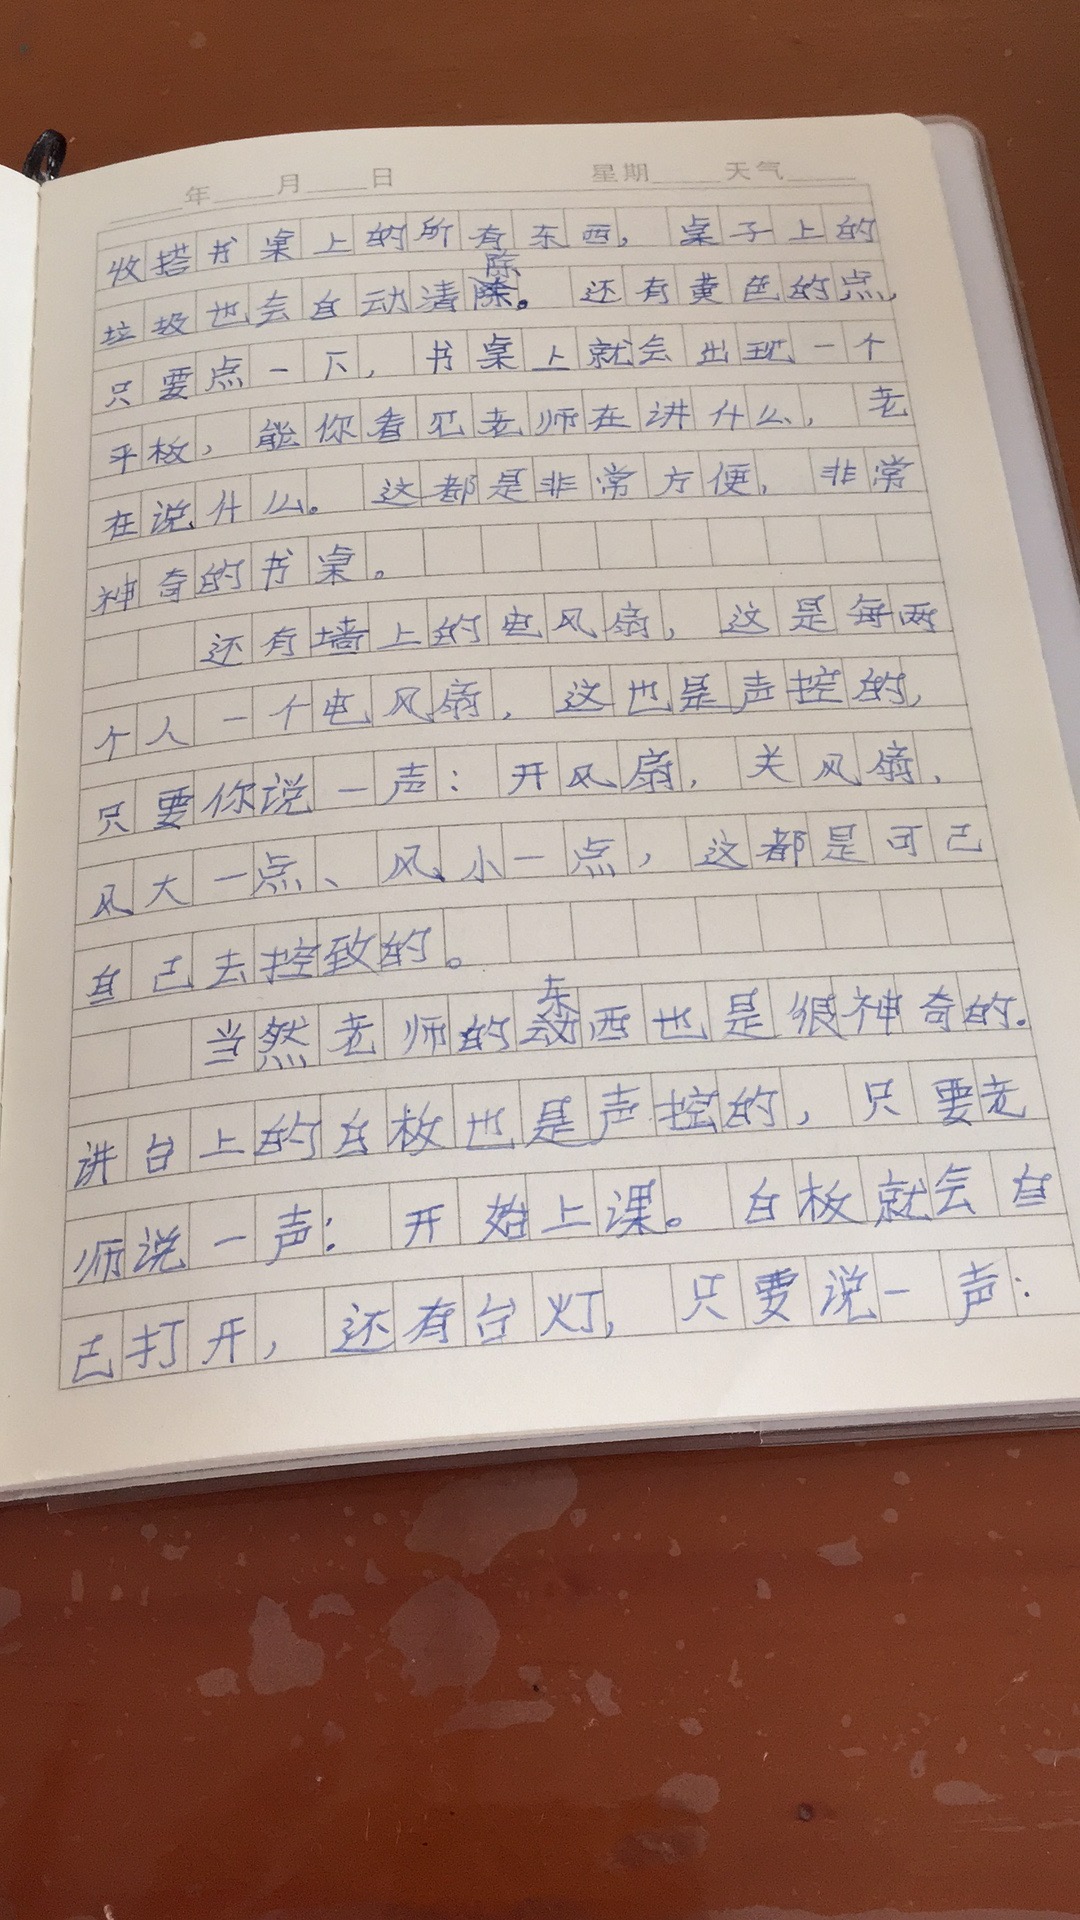 年 月 日 星期 天气
收搭书桌上的所有东西，桌子上的
垃圾也会自动清除。还有黄色的点，
只要点一下，书桌上就会出现一个
平板，能你看见老师在讲什么，老
在说什么。这都是非常方便，非常
神奇的书桌。
还有墙上的电风扇，这是每两
个人一个电风扇，这也是声控的，
只要你说一声：开风扇，关风扇，
风大一点、风小一点，这都是可己
自己去控致的。
当然老师的东西也是很神奇的.
讲台上的白板也是声控的，只要老
师说一声：开始上课。白板就会自
己打开，还有台灯，只要说一声：